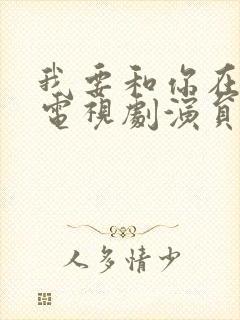 我要和你在
電視劇演員
人多情少